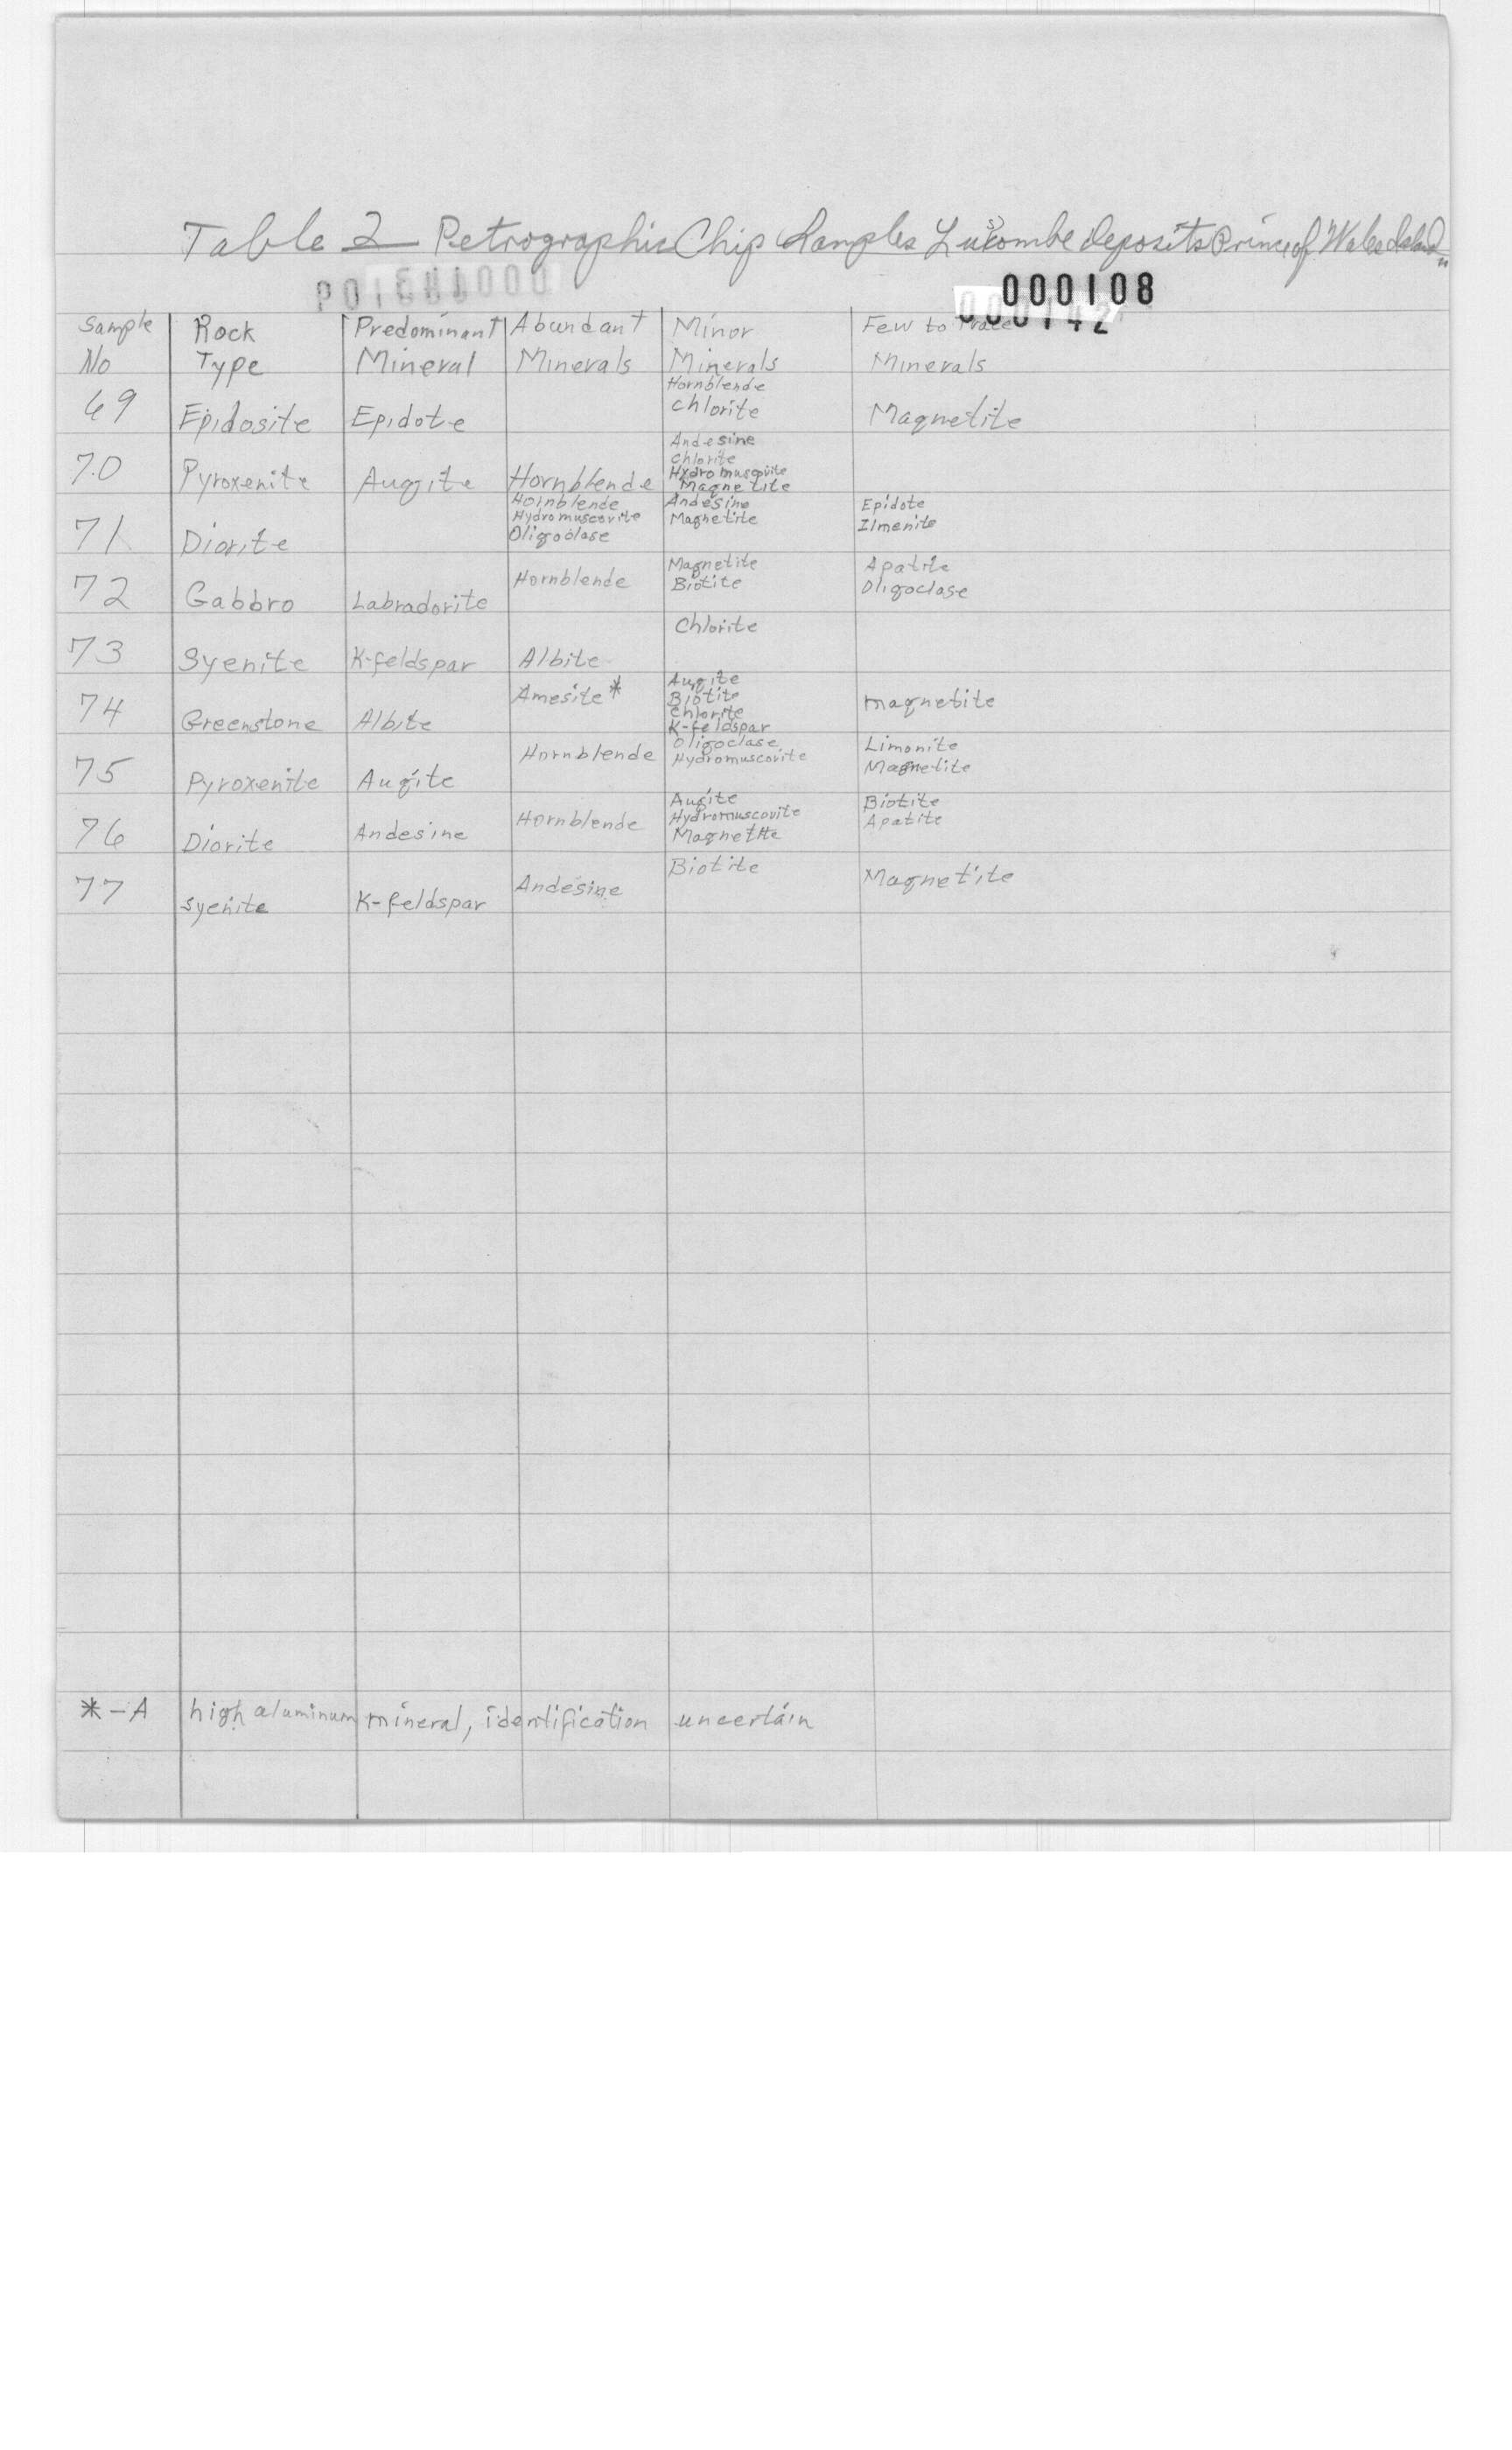 Table 2 Petrographic Chip Samples Luscombe deposits Prince of Wales Island
000108
000142
Sample No | Rock Type | Predominant Mineral | Abundant Minerals | Minor Minerals | Few to Trace Minerals
69 | Epidosite | Epidote | | Hornblende Chlorite | Magnetite
70 | Pyroxenite | Augite | Hornblende | Andesine Chlorite Hydromuscovite Magnetite |
71 | Diorite | | Hornblende Hydromuscovite Oligoclase | Andesine Magnetite | Epidote Ilmenite
72 | Gabbro | Labradorite | Hornblende | Magnetite Biotite | Apatite Oligoclase
73 | Syenite | K-feldspar | Albite | Chlorite |
74 | Greenstone | Albite | Amesite* | Augite Biotite Chlorite K-feldspar | magnetite
75 | Pyroxenite | Augite | Hornblende | Oligoclase Hydromuscovite | Limonite Magnetite
76 | Diorite | Andesine | Hornblende | Augite Hydromuscovite Magnetite | Biotite Apatite
77 | syenite | K-feldspar | Andesine | Biotite | Magnetite
*-A high aluminum mineral, identification uncertain